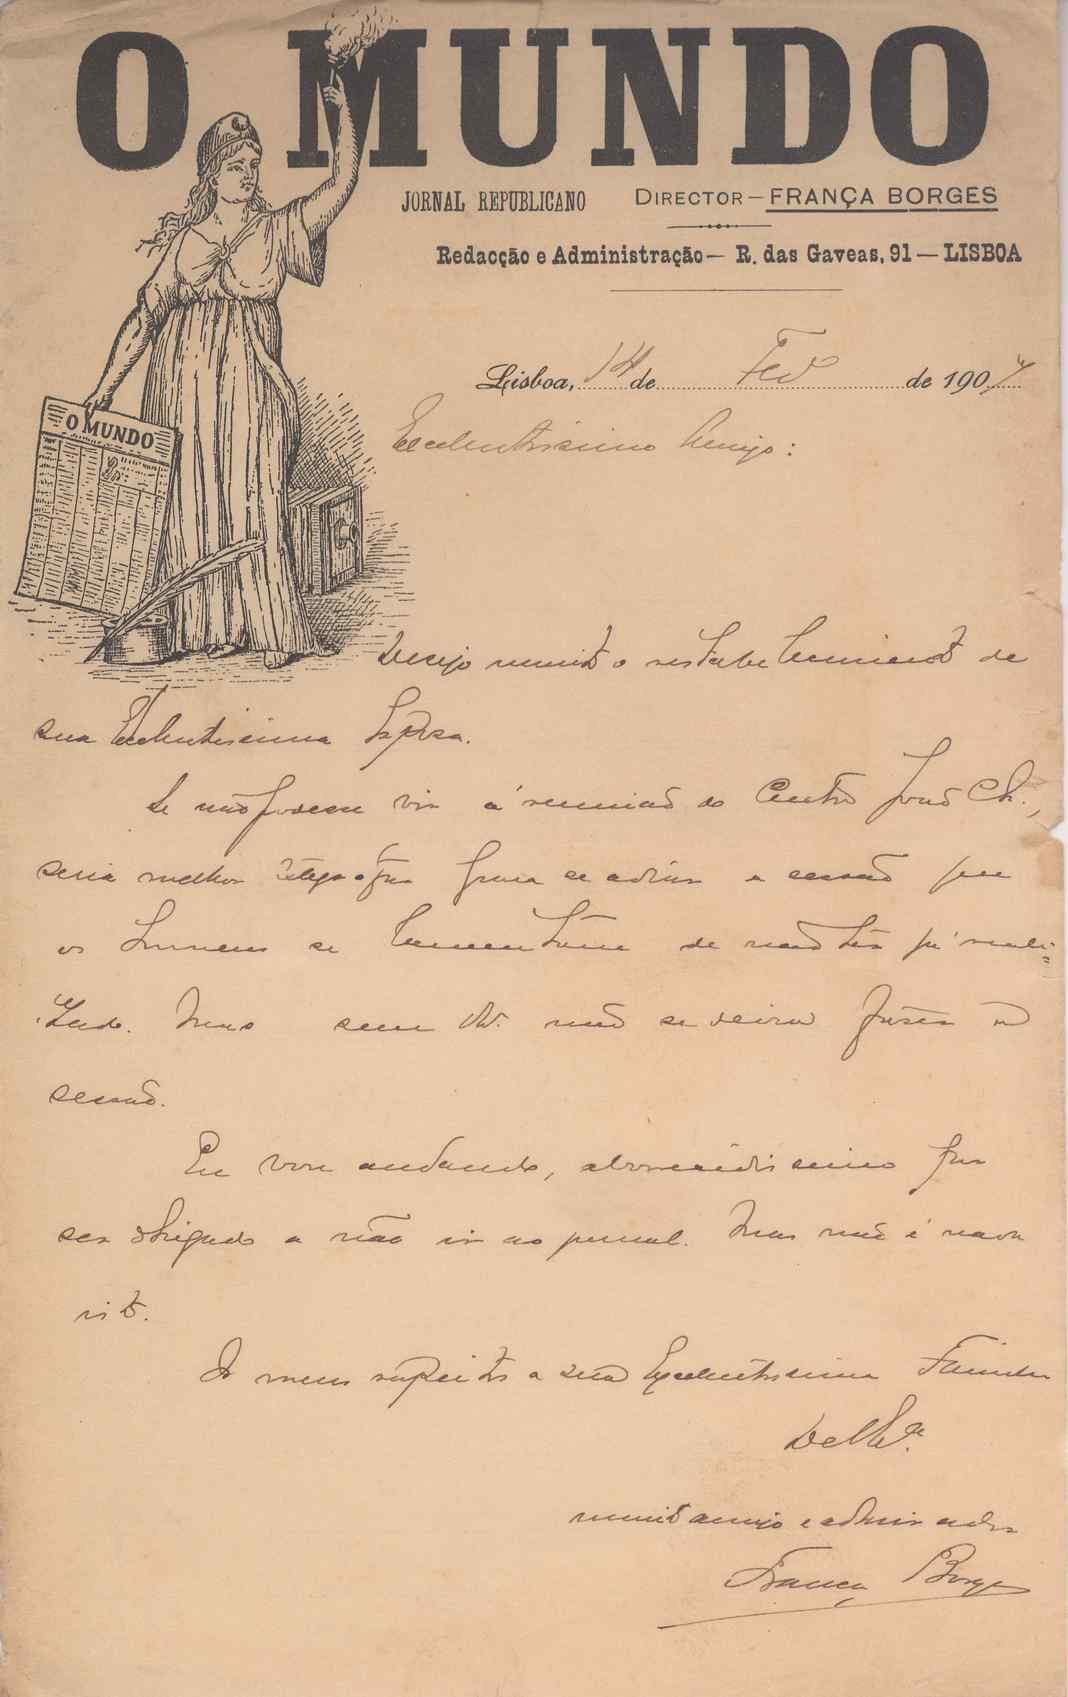 O MUNDO
JORNAL REPUBLICANO
DIRECTOR — FRANÇA BORGES
Redacção e Administração — R. das Gaveas, 91 — LISBOA
Lisboa, 14 de Fev de 1907
O MUNDO
Excelentissimo Amigo:
Desejo muito o restabelecimento de
sua Excelentissima Esposa.
Se não poder vir á reunião do Centro João Ch.,
seria melhor para se adiar a sessão
os homens se de não ter já reali-
zado. Mas sem V. não se deixa fazer a
sessão.
Eu vou andando, aborrecidissimo por
ser obrigado a não ir ao jornal. Mas não é nada
isto.
Os meus respeitos a sua Excelentissima Familia
De V. Ex.ª
muito amigo e admirador
França Borges